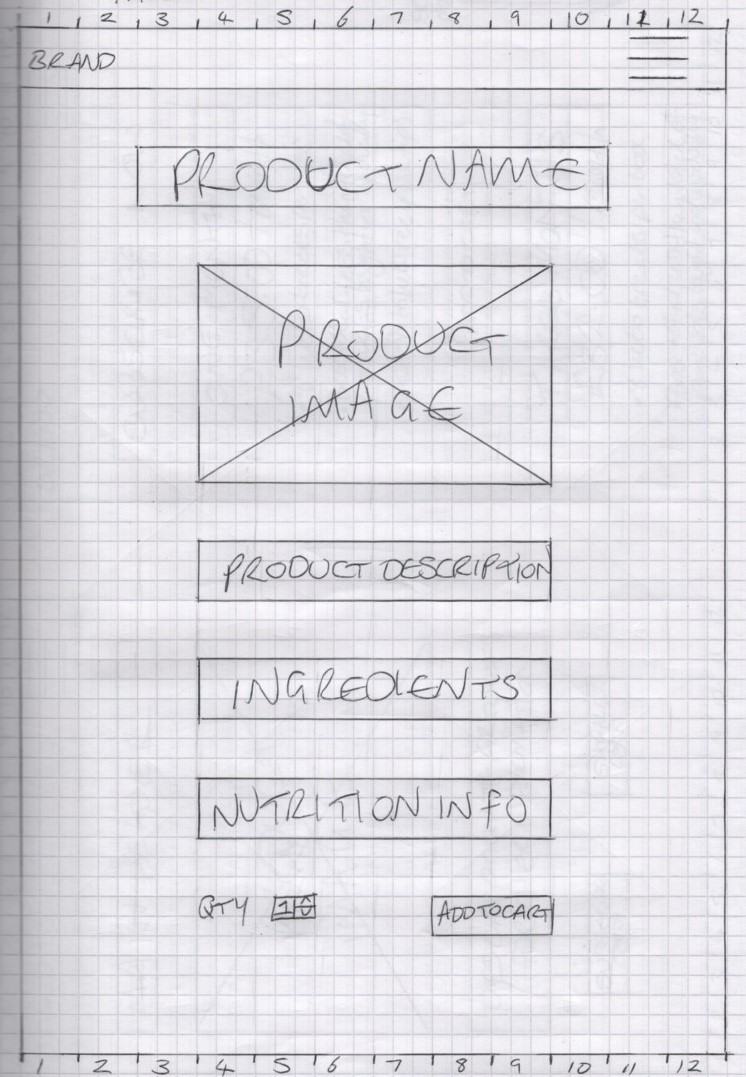 1 2 3 4 5 6 7 8 9 10 11 12
BRAND
PRODUCT NAME
PRODUCT
IMAGE
PRODUCT DESCRIPTION
INGREDIENTS
NUTRITION INFO
QTY 1 ADD TO CART
1 2 3 4 5 6 7 8 9 10 11 12